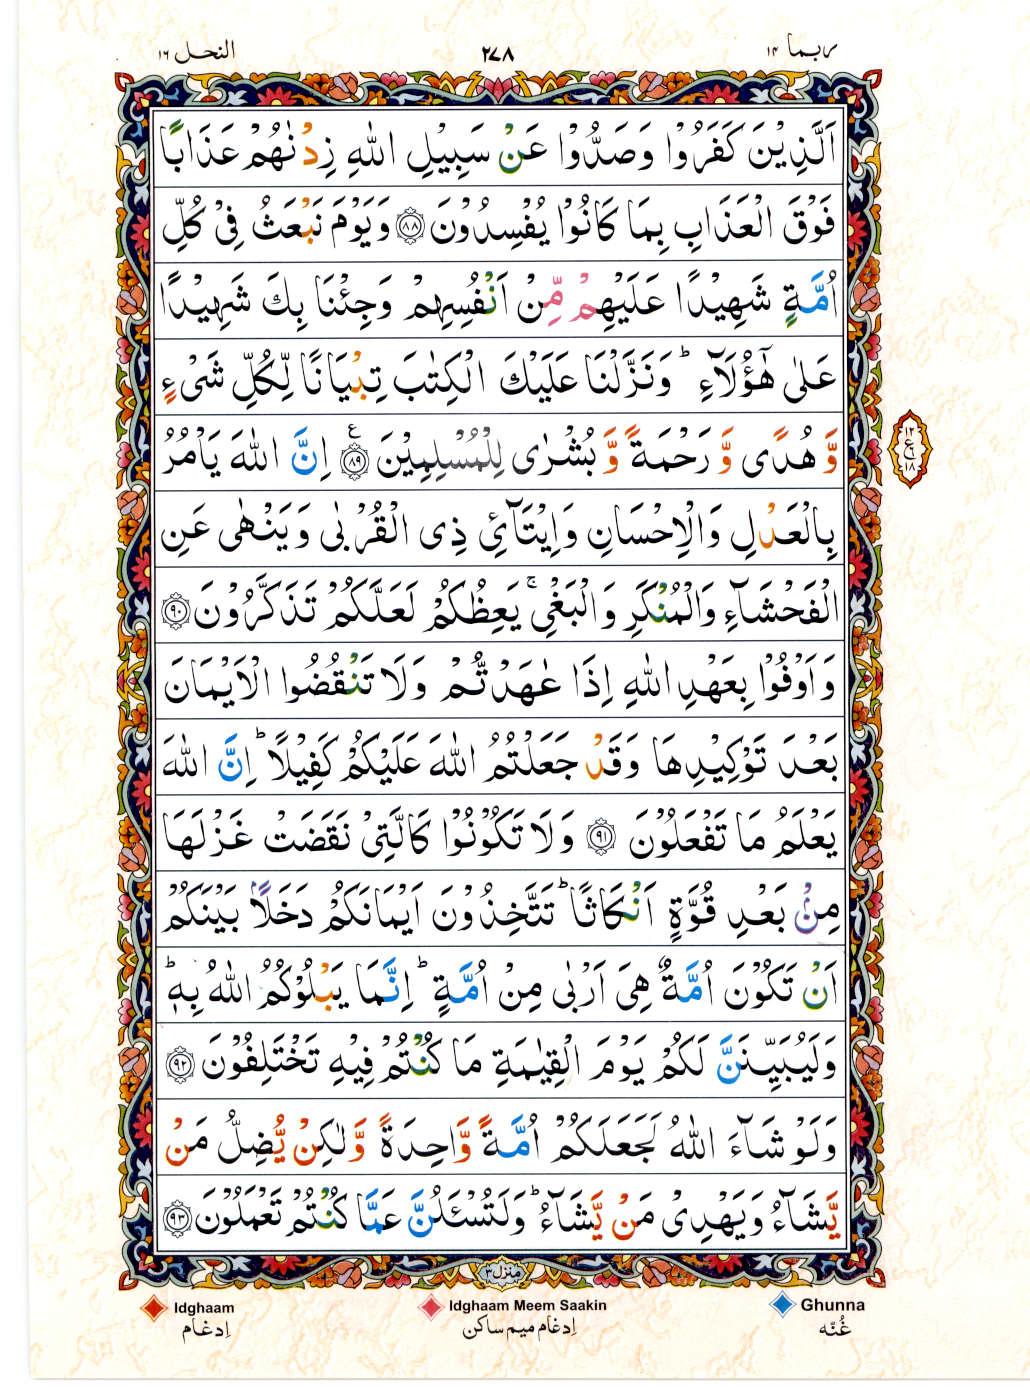 ربما ۱۴
۲۷۸
النحل ۱۶
اَلَّذِيْنَ كَفَرُوْا وَصَدُّوْا عَنْ سَبِيْلِ اللّٰهِ زِدْنٰهُمْ عَذَابًا
فَوْقَ الْعَذَابِ بِمَا كَانُوْا يُفْسِدُوْنَ ﴿۸۸﴾ وَيَوْمَ نَبْعَثُ فِيْ كُلِّ
اُمَّةٍ شَهِيْدًا عَلَيْهِمْ مِّنْ اَنْفُسِهِمْ وَجِئْنَا بِكَ شَهِيْدًا
عَلٰى هٰٓؤُلَآءِ ؕ وَنَزَّلْنَا عَلَيْكَ الْكِتٰبَ تِبْيَانًا لِّكُلِّ شَيْءٍ
وَّ هُدًى وَّ رَحْمَةً وَّ بُشْرٰى لِلْمُسْلِمِيْنَ ﴿۸۹﴾ ع اِنَّ اللّٰهَ يَاْمُرُ
۱۲
ع
۱۸
بِالْعَدْلِ وَالْاِحْسَانِ وَاِيْتَآئِ ذِي الْقُرْبٰى وَيَنْهٰى عَنِ
الْفَحْشَآءِ وَالْمُنْكَرِ وَالْبَغْيِ ۚ يَعِظُكُمْ لَعَلَّكُمْ تَذَكَّرُوْنَ ﴿۹۰﴾
وَاَوْفُوْا بِعَهْدِ اللّٰهِ اِذَا عٰهَدْتُّمْ وَلَا تَنْقُضُوا الْاَيْمَانَ
بَعْدَ تَوْكِيْدِهَا وَقَدْ جَعَلْتُمُ اللّٰهَ عَلَيْكُمْ كَفِيْلًا ؕ اِنَّ اللّٰهَ
يَعْلَمُ مَا تَفْعَلُوْنَ ﴿۹۱﴾ وَلَا تَكُوْنُوْا كَالَّتِيْ نَقَضَتْ غَزْلَهَا
مِنْۢ بَعْدِ قُوَّةٍ اَنْكَاثًا ؕ تَتَّخِذُوْنَ اَيْمَانَكُمْ دَخَلًاۢ بَيْنَكُمْ
اَنْ تَكُوْنَ اُمَّةٌ هِيَ اَرْبٰى مِنْ اُمَّةٍ ؕ اِنَّمَا يَبْلُوْكُمُ اللّٰهُ بِهٖ ؕ
وَلَيُبَيِّنَنَّ لَكُمْ يَوْمَ الْقِيٰمَةِ مَا كُنْتُمْ فِيْهِ تَخْتَلِفُوْنَ ﴿۹۲﴾
وَلَوْ شَآءَ اللّٰهُ لَجَعَلَكُمْ اُمَّةً وَّاحِدَةً وَّلٰكِنْ يُّضِلُّ مَنْ
يَّشَآءُ وَيَهْدِيْ مَنْ يَّشَآءُ ؕ وَلَتُسْـَٔلُنَّ عَمَّا كُنْتُمْ تَعْمَلُوْنَ ﴿۹۳﴾
منزل ۳
Ghunna
غُنّه
Idghaam Meem Saakin
اِدغام ميم ساكن
Idghaam
اِدغام